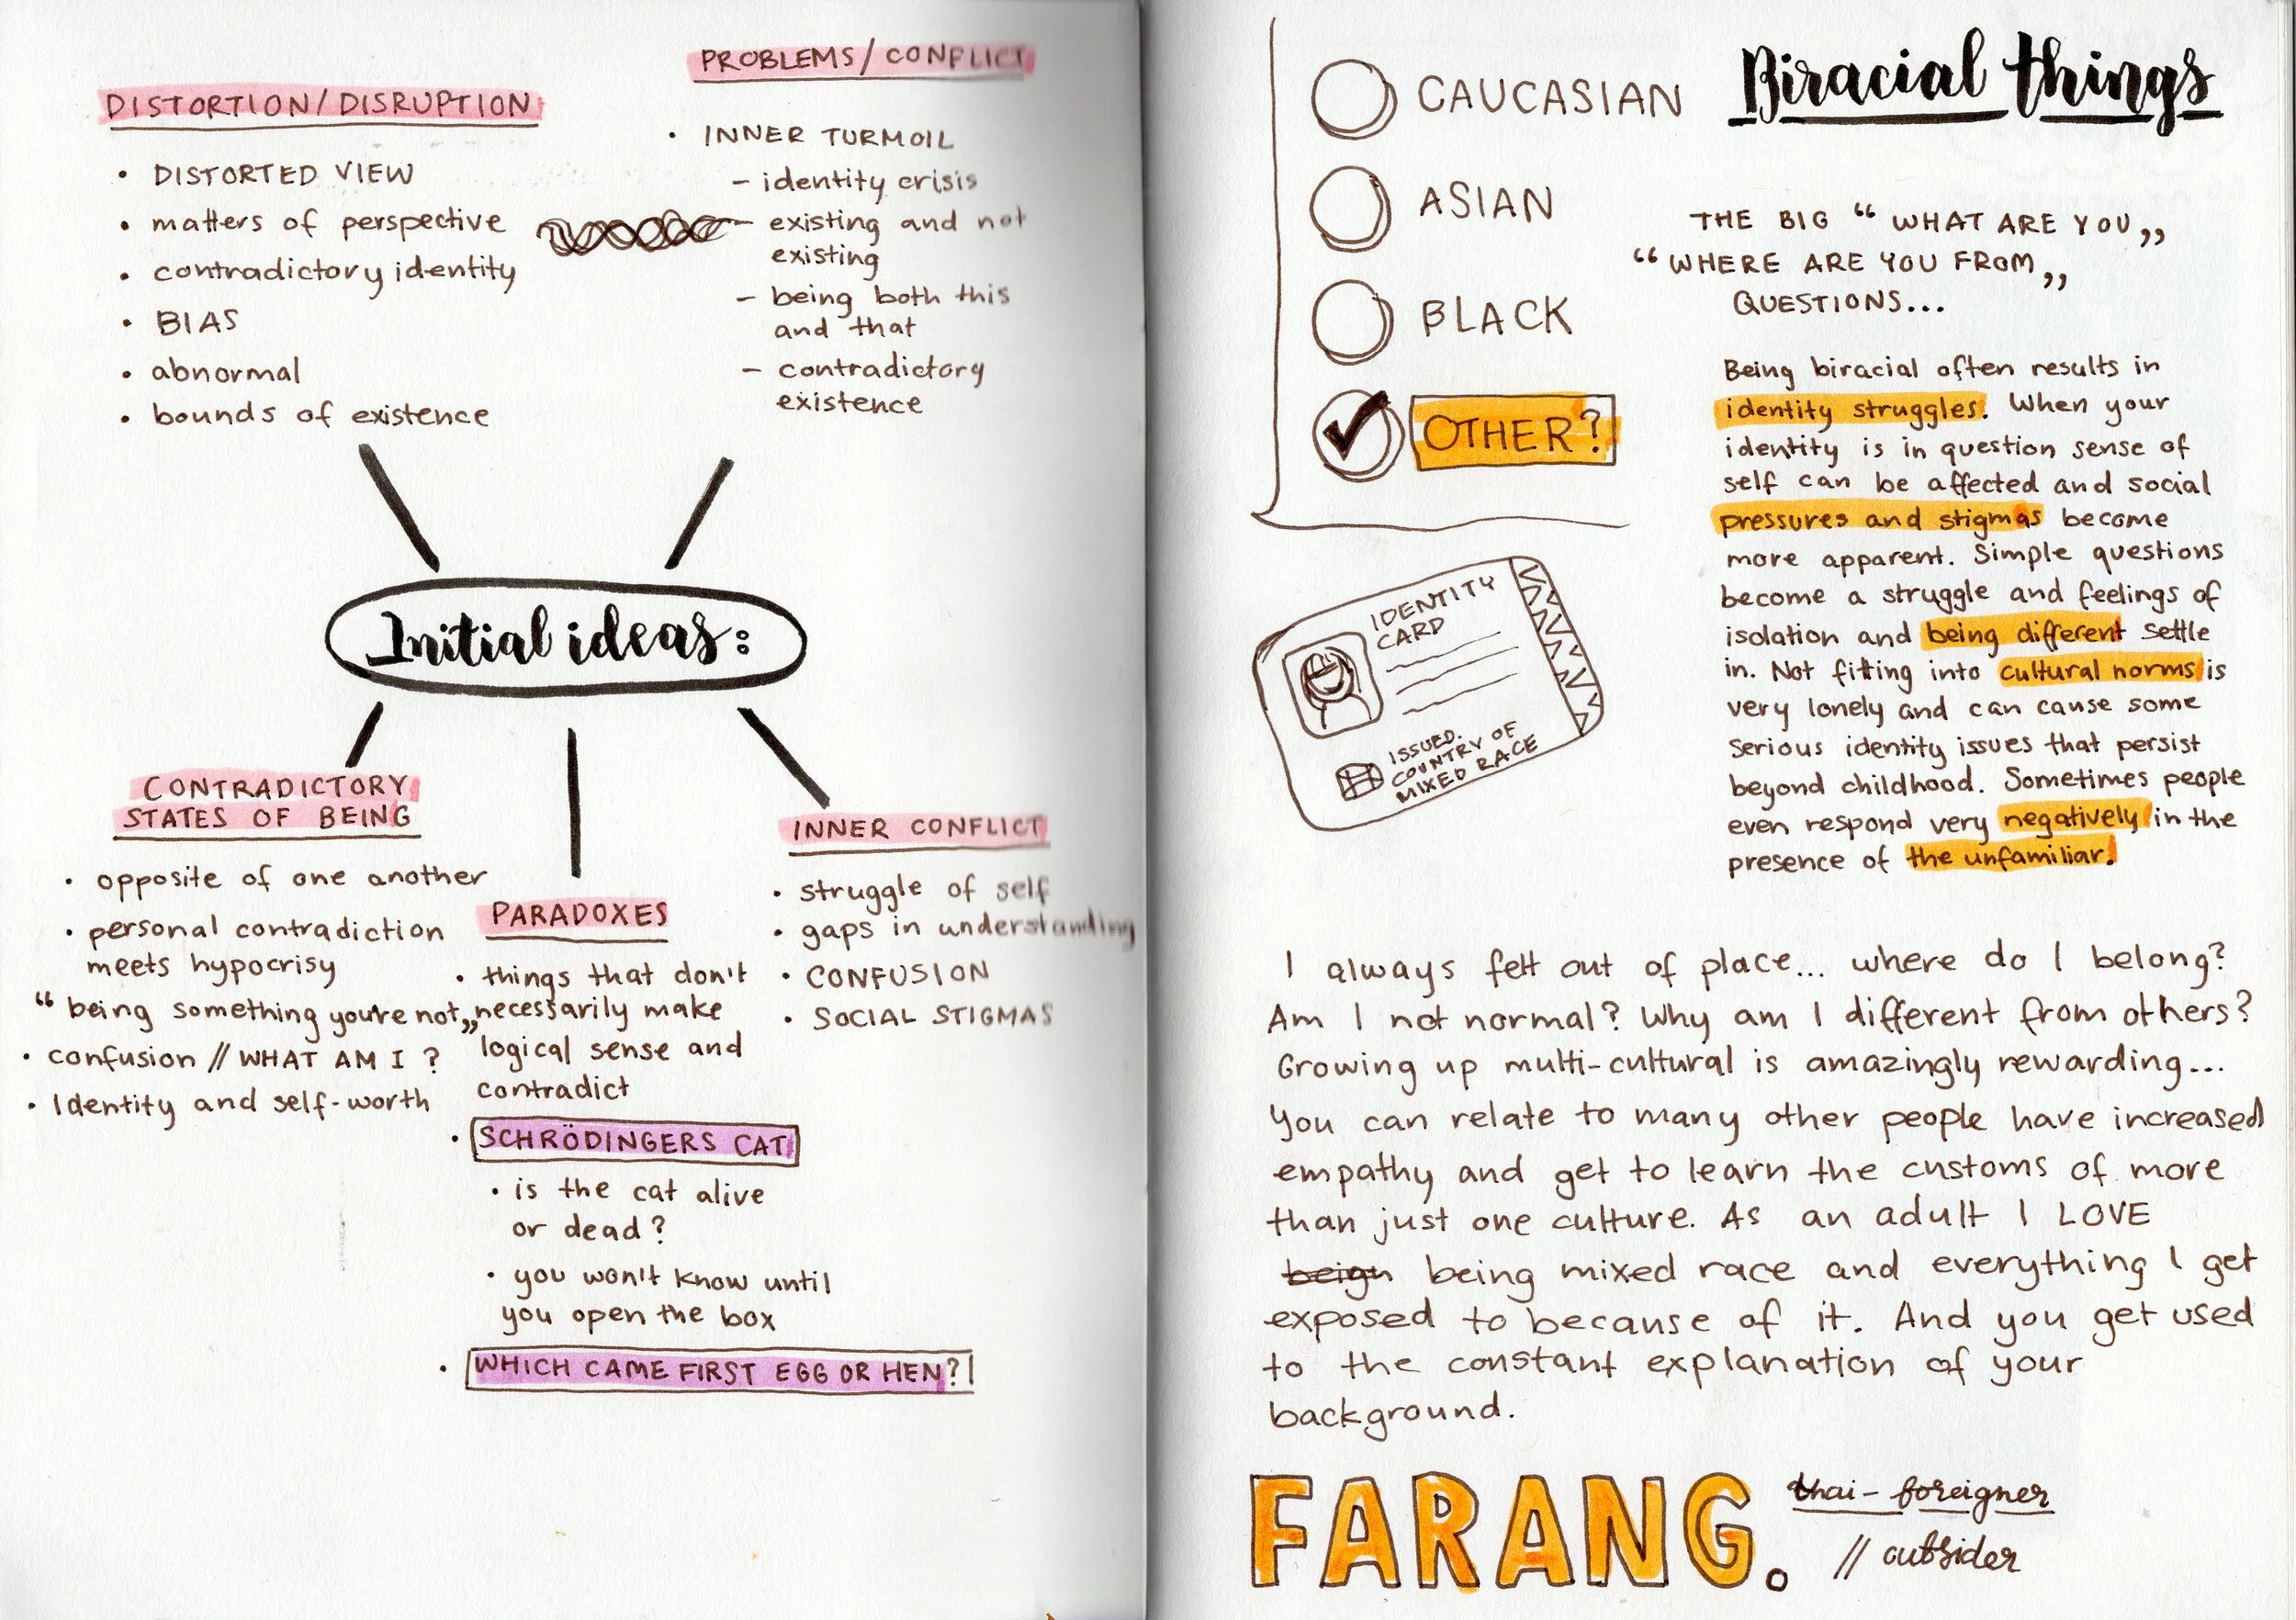 DISTORTION/DISRUPTION
• DISTORTED VIEW
• matters of perspective
• contradictory identity
• BIAS
• abnormal
• bounds of existence
PROBLEMS/CONFLICT
• INNER TURMOIL
– identity crisis
– existing and not
existing
– being both this
and that
– contradictory
existence
Initial ideas:
CONTRADICTORY
STATES OF BEING
• opposite of one another
• personal contradiction
meets hypocrisy
“ being something you're not„
• confusion // WHAT AM I ?
• Identity and self-worth
PARADOXES
• things that don't
necessarily make
logical sense and
contradict
• SCHRÖDINGERS CAT
• is the cat alive
or dead?
• you won't know until
you open the box
• WHICH CAME FIRST EGG OR HEN?
INNER CONFLICT
• struggle of self
• gaps in understanding
• CONFUSION
• SOCIAL STIGMAS
Biracial things
CAUCASIAN
ASIAN
BLACK
OTHER?
THE BIG “ WHAT ARE YOU„
“ WHERE ARE YOU FROM„
QUESTIONS...
Being biracial often results in
identity struggles. When your
identity is in question sense of
self can be affected and social
pressures and stigmas become
more apparent. Simple questions
become a struggle and feelings of
isolation and being different settle
in. Not fitting into cultural norms is
very lonely and can cause some
serious identity issues that persist
beyond childhood. Sometimes people
even respond very negatively in the
presence of the unfamiliar.
IDENTITY
CARD
ISSUED.
COUNTRY OF
MIXED RACE
I always felt out of place... where do I belong?
Am I not normal? Why am I different from others?
Growing up multi-cultural is amazingly rewarding...
You can relate to many other people have increased
empathy and get to learn the customs of more
than just one culture. As an adult I LOVE
beign being mixed race and everything I get
exposed to because of it. And you get used
to the constant explanation of your
background.
FARANG.
thai - foreigner
// outsider